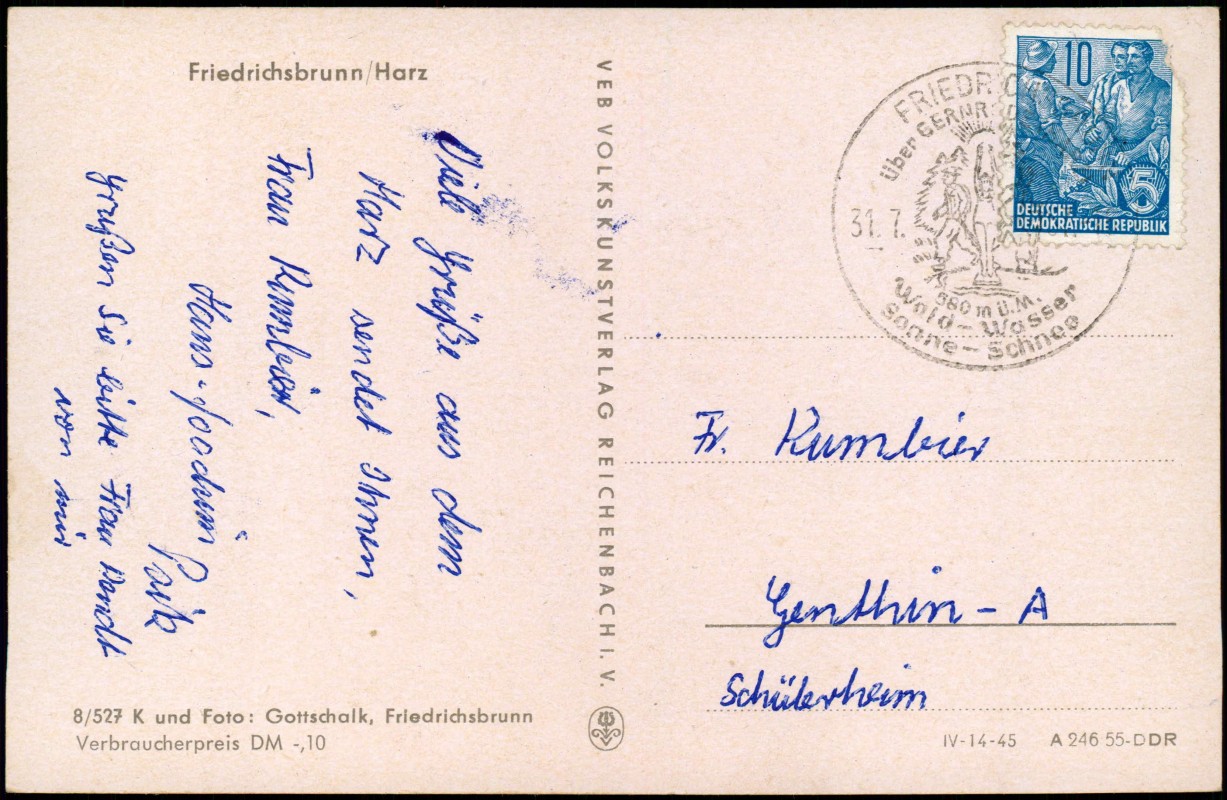 Friedrichsbrunn/Harz
Viele Grüße aus dem
Harz sendet Ihnen,
Frau Kumbier,
Hans-Joachim
Grüßen Sie bitte Frau Wendt
von mir
8/527 K und Foto: Gottschalk, Friedrichsbrunn
Verbraucherpreis DM -,10
VEB VOLKSKUNSTVERLAG REICHENBACH I. V.
FRIEDRIC
über GERNR
31. 7.
580 m ü.M.
Wald - Wasser
Sonne - Schnee
10
5
DEUTSCHE
DEMOKRATISCHE REPUBLIK
Fr. Kumbier
Genthin - A
Schülerheim
IV-14-45 A 246 55-DDR